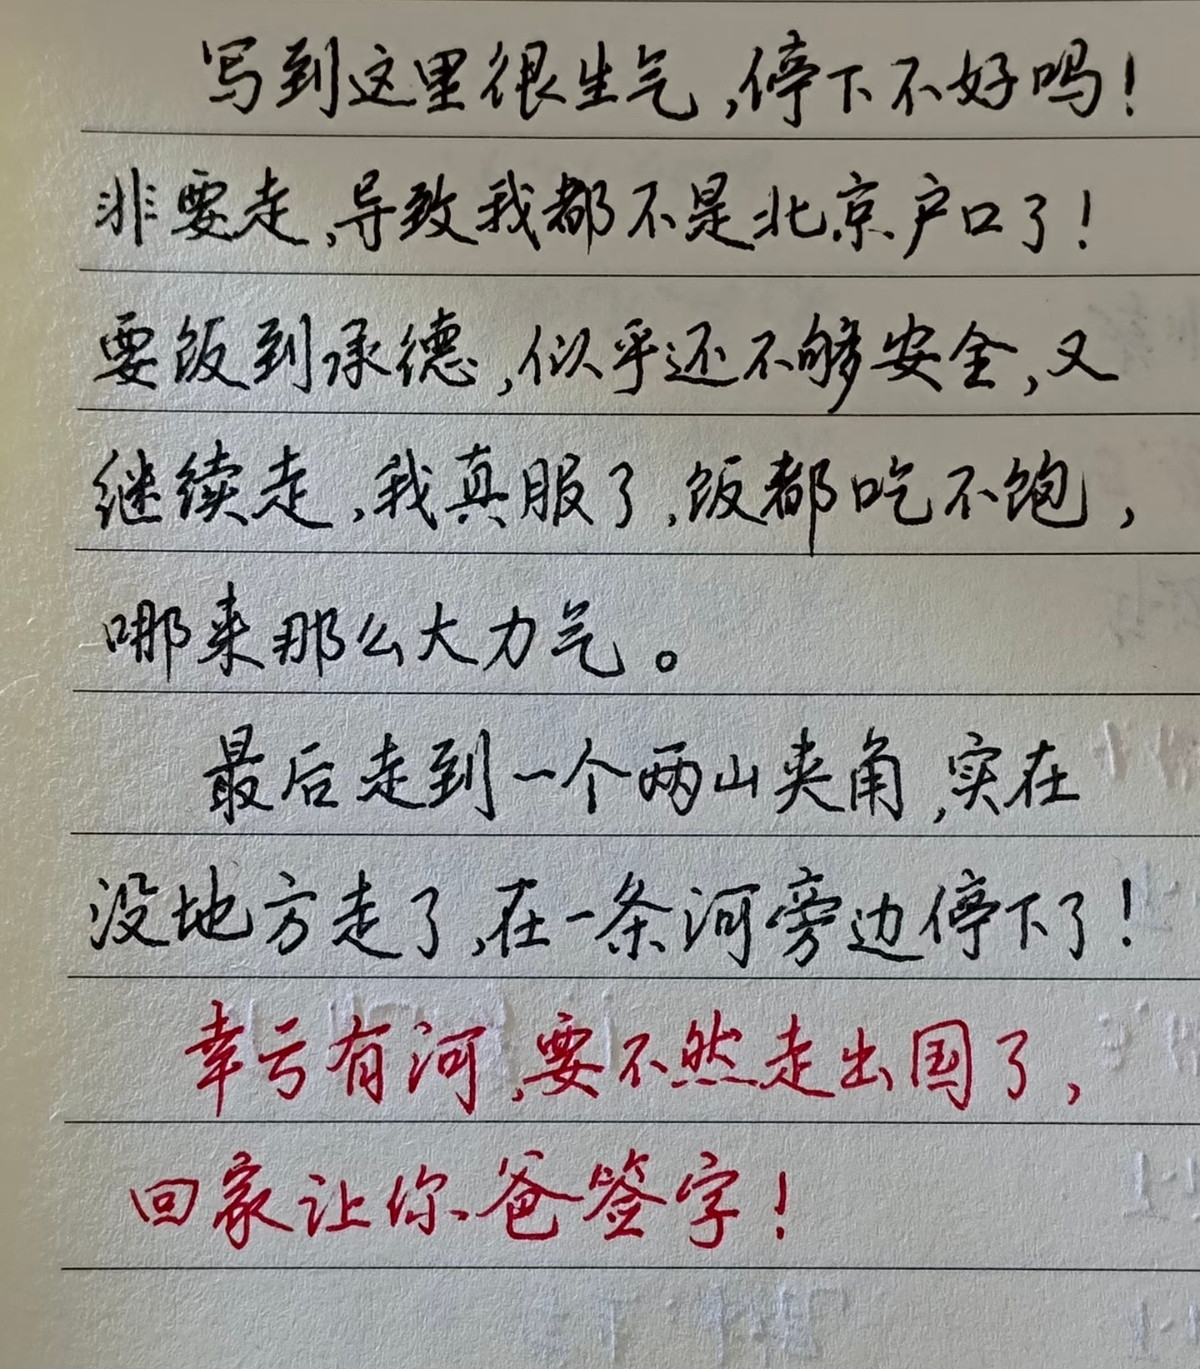 写到这里很生气,停下不好吗!
非要走,导致我都不是北京户口了!
要饭到承德,似乎还不够安全,又
继续走,我真服了,饭都吃不饱,
哪来那么大力气。
最后走到一个两山夹角,实在
没地方走了,在一条河旁边停下了!
幸亏有河,要不然走出国了,
回家让你爸签字!